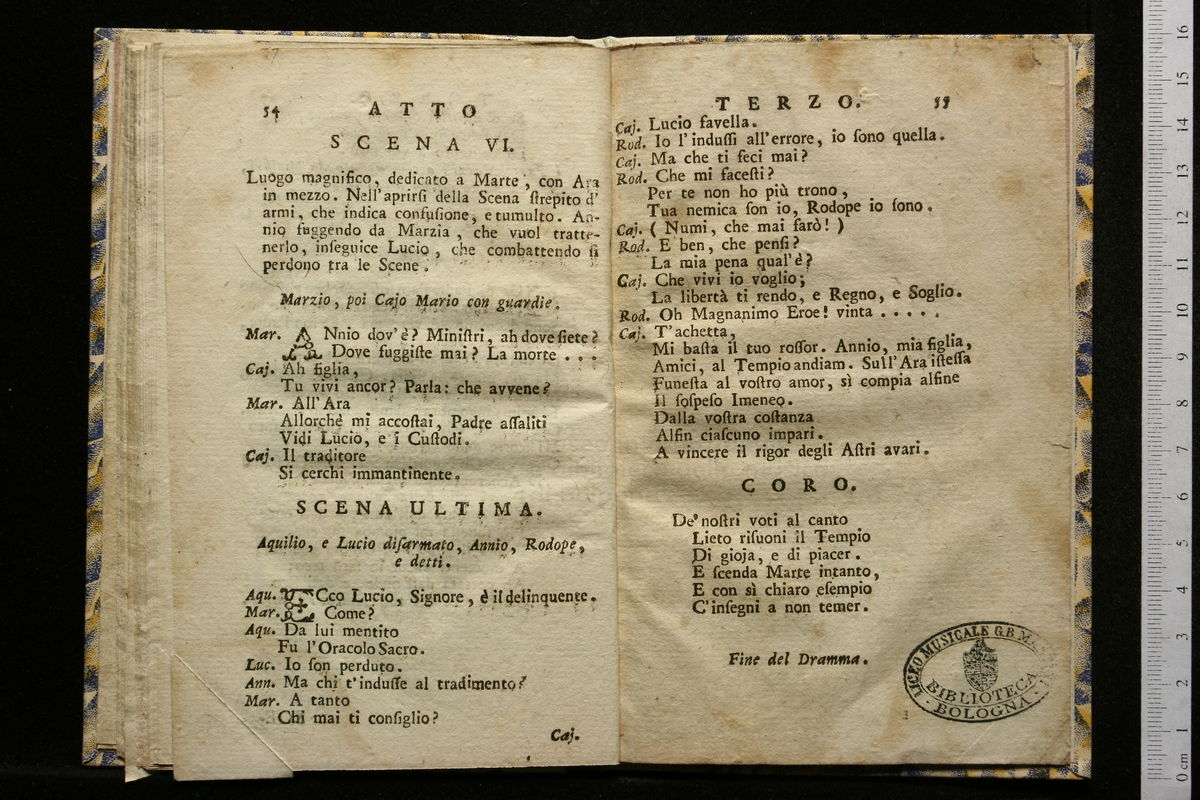 54 ATTO
SCENA VI.
Luogo magnifico, dedicato a Marte, con Ara
in mezzo. Nell'aprirsi della Scena strepito d'
armi, che indica confusione, e tumulto. An-
nio fuggendo da Marzia, che vuol tratte-
nerlo, inseguice Lucio, che combattendo si
perdono tra le Scene.
Marzio, poi Cajo Mario con guardie.
Mar. ANnio dov'è? Ministri, ah dove siete?
Dove fuggiste mai? La morte . . .
Caj. Ah figlia,
Tu vivi ancor? Parla: che avvene?
Mar. All'Ara
Allorchè mi accostai, Padre assaliti
Vidi Lucio, e i Custodi.
Caj. Il traditore
Si cerchi immantinente.
SCENA ULTIMA.
Aquilio, e Lucio disarmato, Annio, Rodope,
e detti.
Aqu. ECco Lucio, Signore, è il delinquente.
Mar. Come?
Aqu. Da lui mentito
Fu l'Oracolo Sacro.
Luc. Io son perduto.
Ann. Ma chi t'indusse al tradimento?
Mar. A tanto
Chi mai ti consiglio?
Caj.
TERZO. 55
Caj. Lucio favella.
Rod. Io l'indussi all'errore, io sono quella.
Caj. Ma che ti feci mai?
Rod. Che mi facesti?
Per te non ho più trono,
Tua nemica son io, Rodope io sono.
Caj. ( Numi, che mai farò! )
Rod. E ben, che pensi?
La mia pena qual'è?
Caj. Che vivi io voglio;
La libertà ti rendo, e Regno, e Soglio.
Rod. Oh Magnanimo Eroe! vinta . . . . .
Caj. T'achetta,
Mi basta il tuo rossor. Annio, mia figlia,
Amici, al Tempio andiam. Sull'Ara istessa
Funesta al vostro amor, sì compia alfine
Il sospeso Imeneo.
Dalla vostra costanza
Alfin ciascuno impari.
A vincere il rigor degli Astri avari.
CORO.
De' nostri voti al canto
Lieto risuoni il Tempio
Di gioja, e di piacer.
E scenda Marte intanto,
E con sì chiaro esempio
C'insegni a non temer.
Fine del Dramma.
LICEO MUSICALE G.B.M
BIBLIOTECA
BOLOGNA
0 cm 1 2 3 4 5 6 7 8 9 10 11 12 13 14 15 16